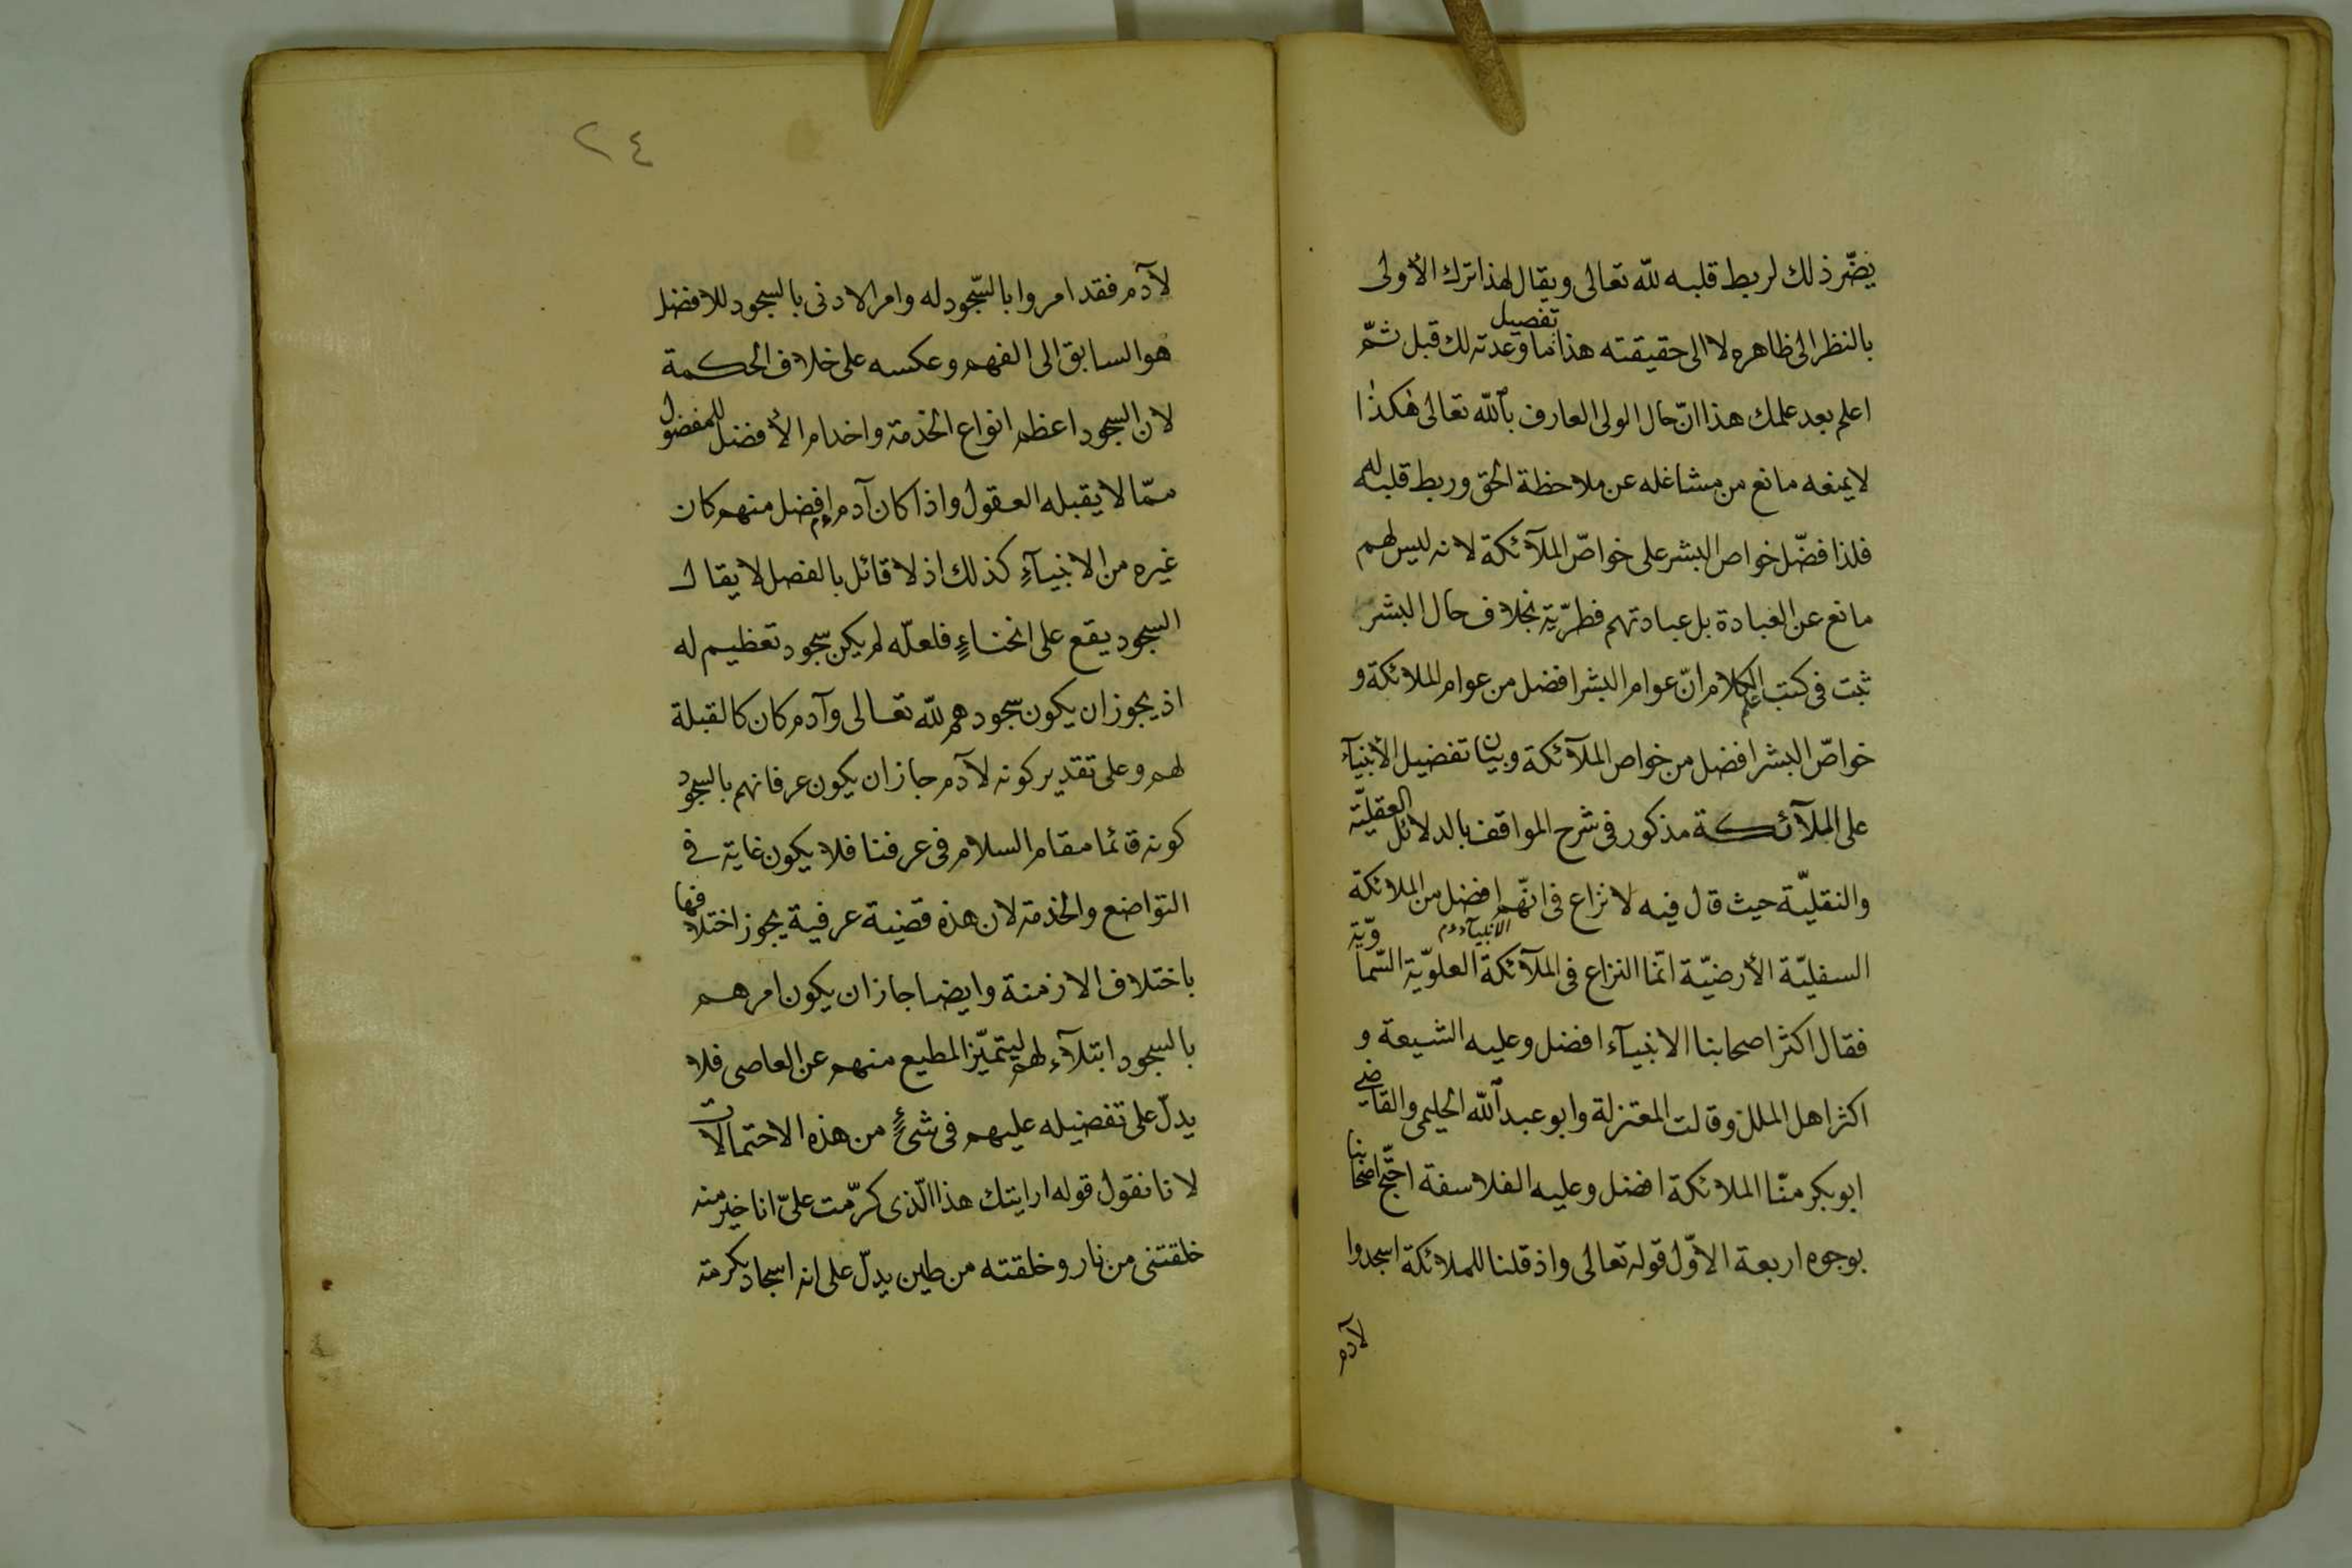 يضّر ذلك لربط قلبه لله تعالى ويقال لهذا ترك الأولى
بالنظر الى ظاهره لا الى حقيقته هذا تفصيل ما وعدته لك قبل ثمّ
اعلم بعد علمك هذا انّ حال الولى العارف بالله تعالى هكذا
لا يمنعه مانع من مشاغله عن ملاحظة الحق وربط قلبه له
فلذا فضّل خواص البشر على خواصّ الملآئكة لانه ليس لهم
مانع عن العبادة بل عبادتهم فطرّية بخلاف حال البشر
ثبت فى كتب علم الكلام انّ عوام البشر افضل من عوام الملائكة و
خواصّ البشر افضل من خواص الملآئكة وبيان تفضيل الأنبيآء
على الملآئكة مذكور فى شرح المواقف بالدلائل العقليّة
والنقليّة حيث قال فيه لا نزاع فى انّهم افضل من الملائكة
الأنبيآء عم
السفليّة الأرضيّة انّما النزاع فى الملآئكة العلويّة السّماويّة
فقال اكثر اصحابنا الانبيآء افضل وعليه الشيعة و
اكثر اهل الملل وقالت المعتزلة وابو عبد الله الحليمى والقاضى
ابو بكر منّا الملائكة افضل وعليه الفلاسفة احتّج اصحابنا
بوجوه اربعة الاوّل قوله تعالى واذ قلنا للملائكة اسجدوا
لآدم
٢٤
لآدم فقد امروا بالسّجود له وامر الادنى بالسجود للافضل
هو السابق الى الفهم وعكسه على خلاف الحكمة
لان السجود اعظم انواع الخدمة واخدام الأفضل للمفضول
ممّا لا يقبله العقول واذا كان آدم عم افضل منهم كان
غيره من الانبيآءِ كذلك اذ لا قائل بالفصل لا يقال
السجود يقع على انحناءٍ فلعلّه لم يكن سجود تعظيم له
اذ يجوز ان يكون سجودهم لله تعالى وآدم كان كالقبلة
لهم وعلى تقدير كونه لآدم جاز ان يكون عرفانهم بالسجود
كونه قائما مقام السلام فى عرفنا فلا يكون غاية فى
التواضع والخدمة لان هذه قضية عرفية يجوز اختلافها
باختلاف الازمنة وايضا جاز ان يكون امرهم
بالسجود ابتلآء لهم ليتميّز المطيع منهم عن العاصى فلا
يدلّ على تفضيله عليهم فى شئٍ من هذه الاحتمالات
لانا نقول قوله ارايتك هذا الّذى كرّمت علىّ انا خير منه
خلقتنى من نار وخلقته من طين يدلّ على انه اسجاد تكرمة